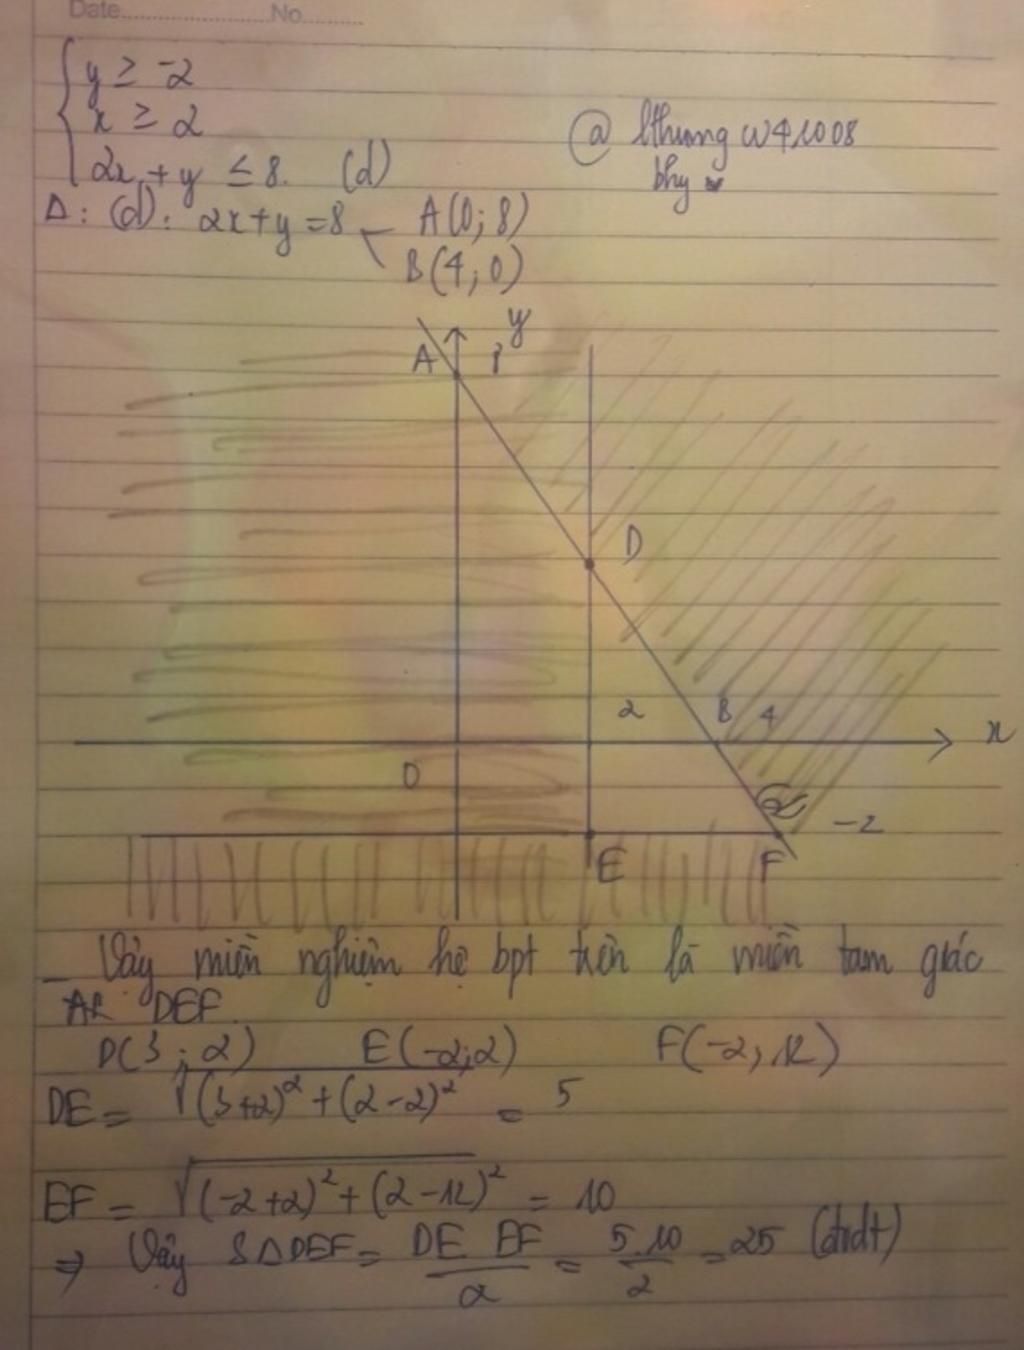 Date.....................No.........
{ y ≥ -2
x ≥ 2
2x + y ≤ 8. (d)
@ lthuong w4,1008
bhy
Δ: (d): 2x+y=8 A(0; 8)
B(4; 0)
y
A
D
2 B 4
x
0
-2
E F
_ Vậy miền nghiệm hệ bpt trên là miền tam giác
DEF.
D(3; 2) E(-2;2) F(-2; 12)
DE = √(3+2)² + (2-2)² = 5
EF = √(-2+2)² + (2-12)² = 10
⇒ Vậy SΔDEF = DE EF / 2 = 5.10 / 2 = 25 (đvdt)